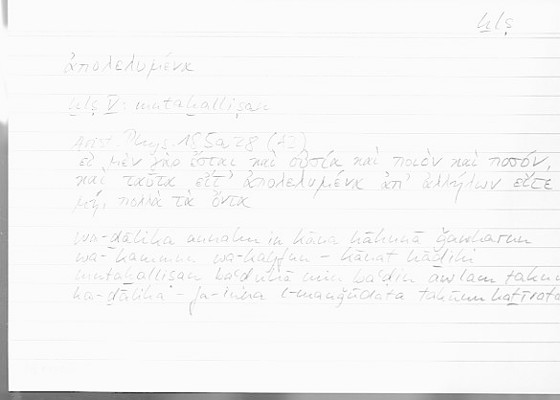 ḫlṣ
ἀπολελυμένα
ḫlṣ V: mutaḫalliṣan
Arist. Phys. 185a28 (A3)
εἰ μὲν γὰρ ἔσται καὶ οὐσία καὶ ποιὸν καὶ ποσόν,
καὶ ταῦτα εἴτ' ἀπολελυμένα ἀπ' ἀλλήλων εἴτε
μή, πολλὰ τὰ ὄντα
wa-ḏālika annahu in kāna hāhunā ǧawharun
wa-kammun wa-kayfun – kānat hāḏihi
mutaḫalliṣan baʿḍuhā min baʿḍin aw lam takun
ka-ḏālika – fa-inna l-mawǧūdāta takūnu kaṯīrata